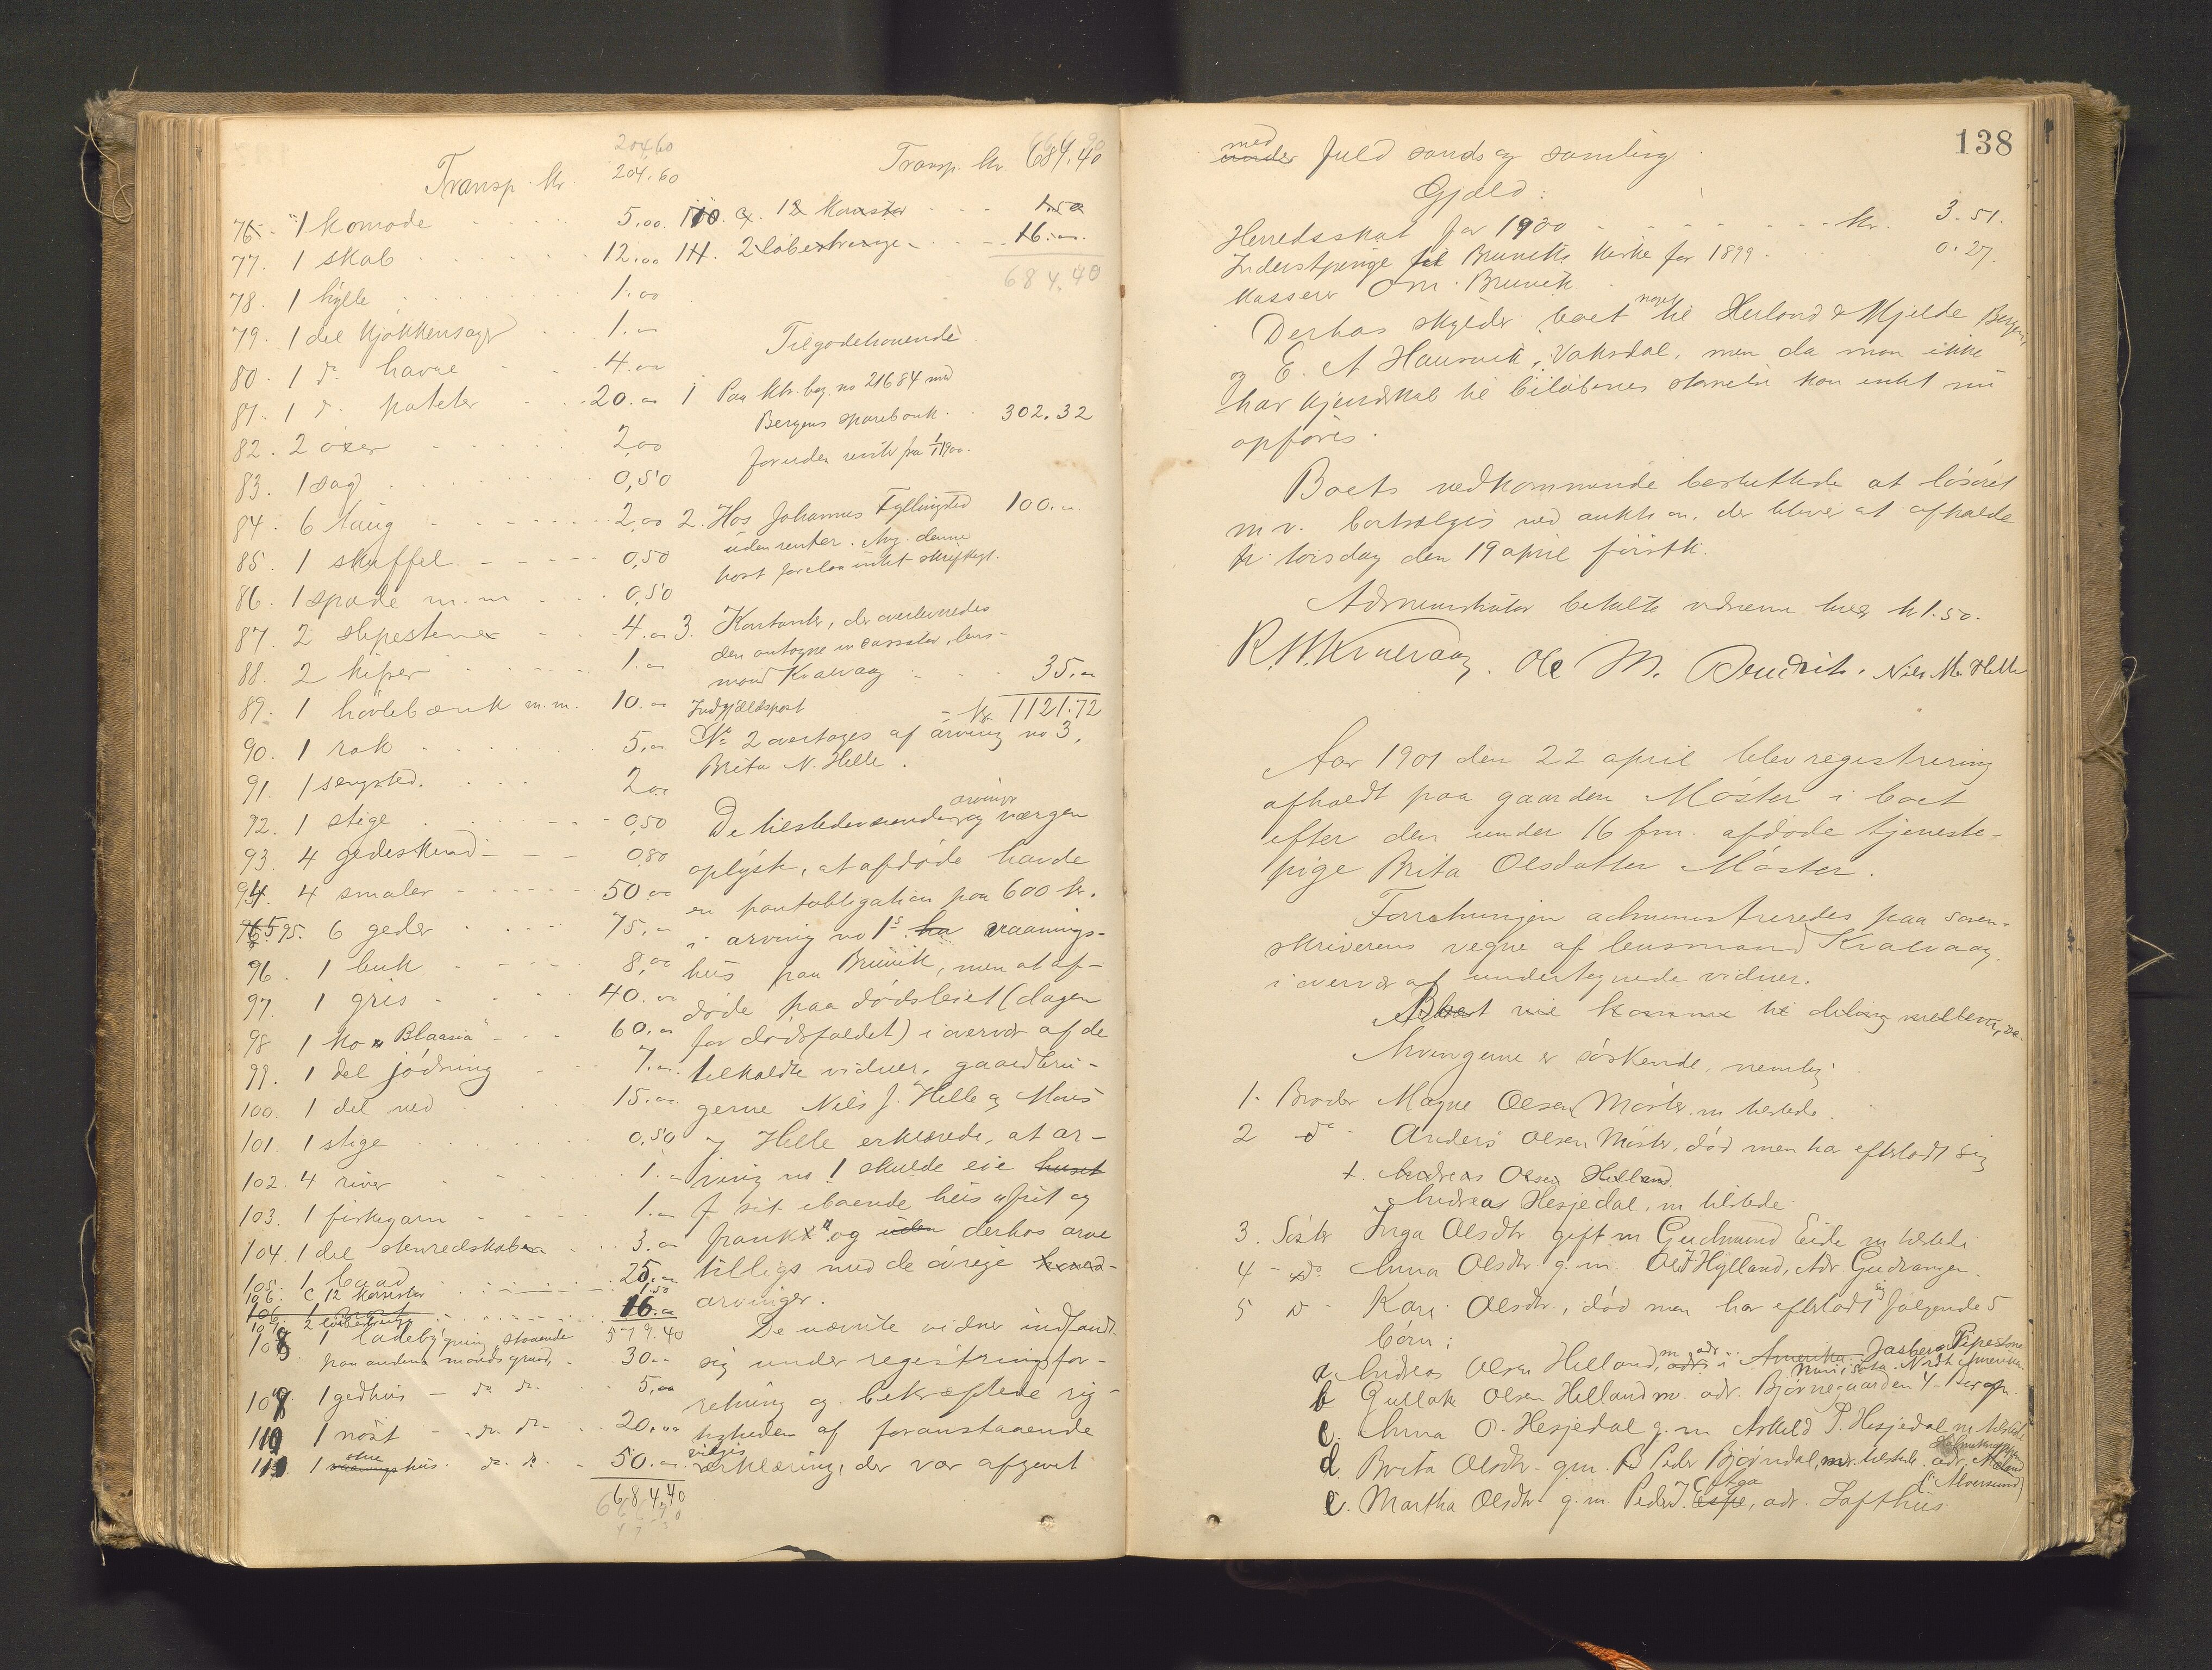 204,60
Transp. kr. 204.60
76. 1 komode 5.00
77. 1 skab 12.00
78. 1 hylle 1.00
79. 1 del kjøkkensager 1.00
80. 1 do havre 4.00
81. 1 do poteter 20.00
82. 2 øxer 2,00
83. 1 sag 0,50
84. 6 taug 2,00
85. 1 skuffel 0,50
86. 1 spade m.m 0,50
87. 2 slipestene 4.00
88. 2 kiper 1.00
89. 1 høvlebænk m.m. 10.00
90. 1 rok 5.00
91. 1 sengsted. 2.00
92. 1 stige 0,50
93. 4 gedeskind 0.80
94. 4 smaler 50.00
95. 6 geder 75.00
96. 1 buk 8,00
97. 1 gris 40.00
98 1 ko "Blaasia" 60.00
99. 1 del jødning 7.00
100. 1 del ved 15.00
101. 1 stige 0,50
102. 4 river 1.00
103. 1 fiskegarn 1.00
104. 1 del stenredskaber 3.00
105. 1 baad 25.00
106. 12 1.50
106. 1
107. 2 16.00
579.40
108 1 ladebygning, staaende
paa anden mands grund, 30.00
109 1 gedhus do do 5,00
110 1 nøst do do 20,00
111 1 hus. do do 50.00
684,40
Transp. kr 684,40
110. a. 12 1.50
111. 2 16.00
684,40
Tilgodehavende
1 Paa ktr. bog no 21684 med
Bergens sparebank 302.32
foruden renter fra 1/1 1900.
2. Hos Johannes Fyllingsted 100.00
uden renter. Ang. denne
post forelaa intet skriftligt.
3. Kontanter, der overleveredes
den antagne incassator, lens-
mand Kvalvaag 35.00
Kr 1121.72
Indgjældspost
No 2 overtages af arving no 3,
Brita N. Helle.
De tilstedeværende arvinger og værgen
oplyste, at afdøde havde
en pantobligation paa 600 kr.
i arving no 1s ha vaanings-
hus paa Bruvik, men at af-
døde paa dødsleiet (dagen
før dødsfaldet) i overvær af de
tilkaldte vidner, gaardbru-
gerne Nils J. Helle og Mons
J Helle erklærede, at ar-
ving no 1 skulde eie huset
sit iboende hus gjæit og
frankt" og uden derhos arve
tilligs med de øvrige
arvinger.
De nævnte vidner indfandt
sig under registringsfor-
retning og bekræftede rig-
tigheden af foranstaaende
erklæring, der var afgivet
138
under med fuld sands og samling
Gjæld:
Herredsskat for 1900 kr. 3.51.
Inderstpenge til Bruviks kirke for 1899 0.27.
kasserer O. M. Bruvik.
Derhos skylder boet noget til Herland & Mjelde Bergen,
og E. A Hausvik, Vaksdal, men da man ikke
har kjendskab til beløbenes størrelse kan intet nu
opføres.
Boets vedkommende besluttede at løsøret
m v. bortsælges ved auktion, der bliver at afholde
torsdag den 19 april førstk.
Administrator betalte vidnerne hver kr 1.50.
R. W. Kvalvaag. Ole M. Bruvik. Nils M. Helle
Aar 1901 den 22 april blev registrering
afholdt paa gaarden Møster i boet
efter den under 16 fm. afdøde tjeneste-
pige Brita Olsdatter Møster.
Forretningen administreredes paa soren-
skriverens vegne af lensmand Kvalvaag.
i overvær af undertegnede vidner.
Boet vil komme til deling mellem,
Arvingerne er søskende, nemlig
1. Broder Magne Olsen Møster, m tilstede.
2 do Anders Olsen Møster, død men ha efterladt sig
+. Andreas Olsen Helland.
Andreas Hesjedal, m tilstede
3. Søster Inga Olsdtr. gift m Gudmund Eide m tilstede
4 do Anna Olsdtr g. m. Hylland, Adr. Gudvangen.
5 do Kari Olsdtr., død men har efterladt sig følgende 5
børn:
a. Andreas Olsen Helland, m adr. i Amerika Jasper Pipestone
Minisota Nordt Amerika.
b Gullak Olsen Helland m. adr. Bjørnegaarden 4 Bergen.
c. Anna O. Hesjedal g. m Askild P. Hesjedal m tilsted.
d. Brita Olsdtr. g m. Peder Bjørndal, m tilstede. adr.
(Alversund)
e. Martha Olsdtr. g. m. Peder J. Espe Aga, adr. Lofthus.